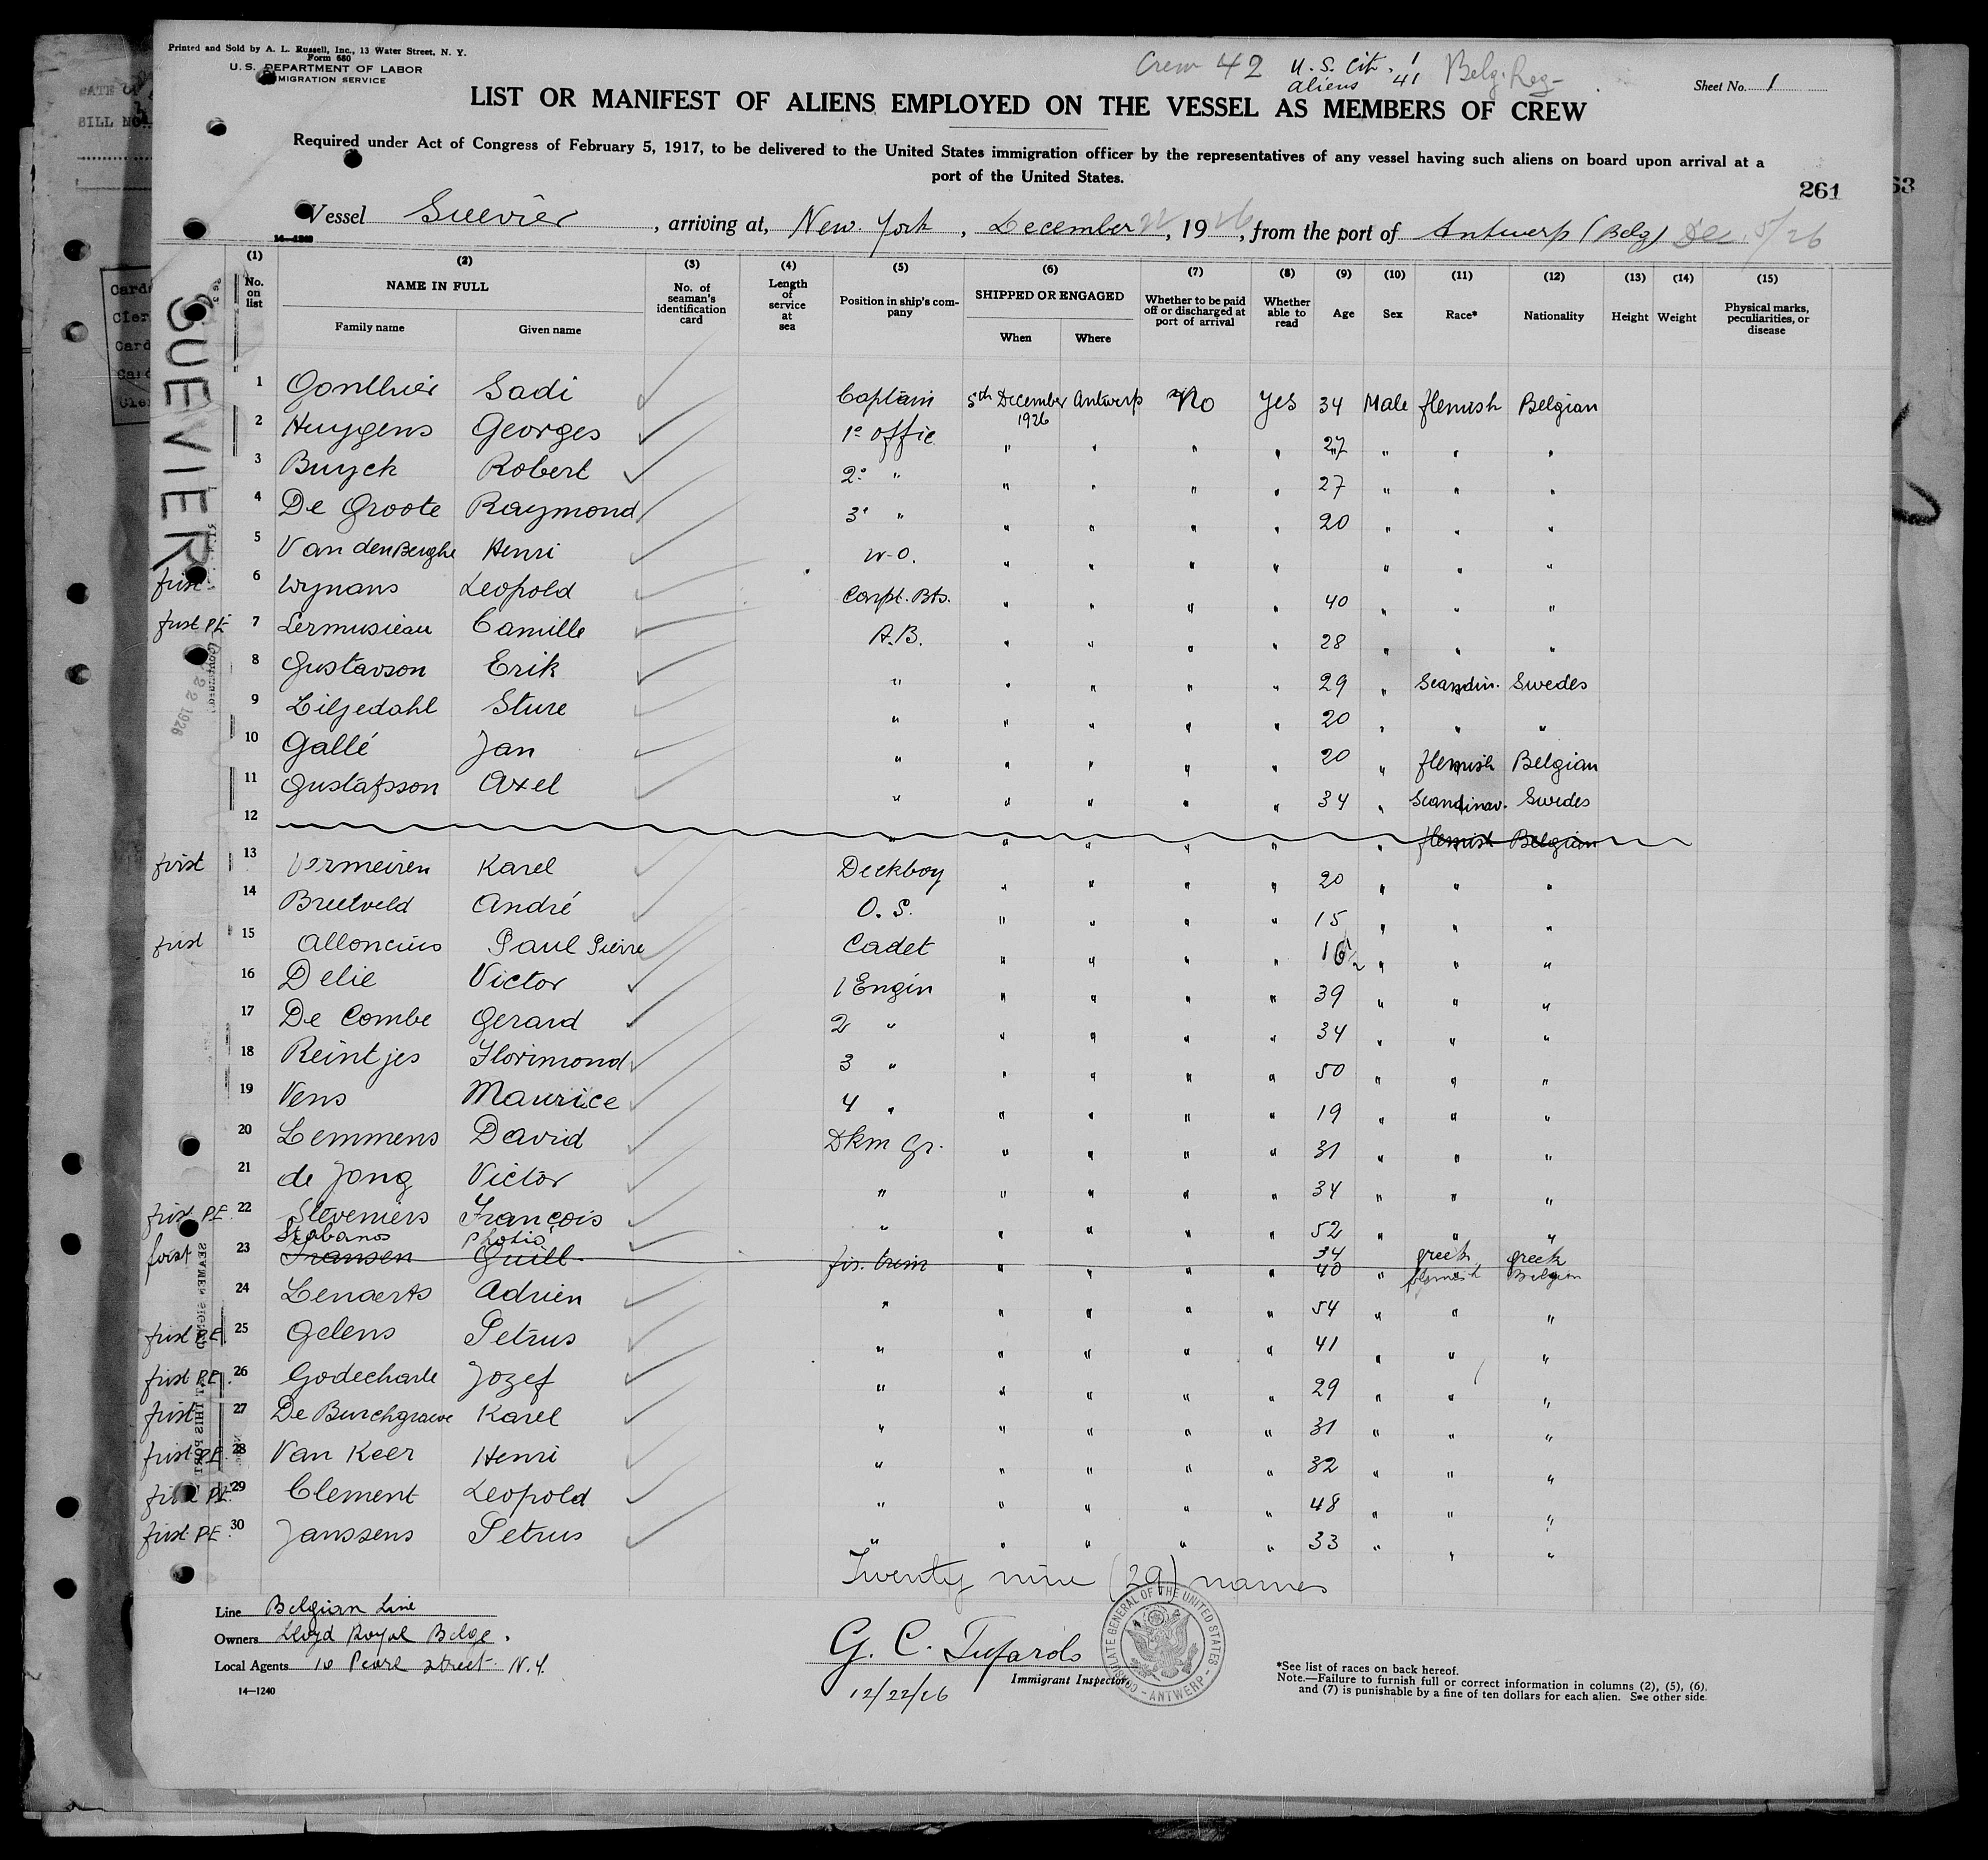 Printed and Sold by A. L. Russell, Inc., 13 Water Street, N. Y.
Form 680
U. S. DEPARTMENT OF LABOR
IMMIGRATION SERVICE
Crew 42 U. S. Cit. 1 Belg. Reg.
aliens 41
Sheet No. 1
LIST OR MANIFEST OF ALIENS EMPLOYED ON THE VESSEL AS MEMBERS OF CREW
Required under Act of Congress of February 5, 1917, to be delivered to the United States immigration officer by the representatives of any vessel having such aliens on board upon arrival at a
port of the United States.
261
Vessel Suevier, arriving at, New York, December 22, 1926, from the port of Antwerp (Belg) Dec. 5/26
14—1240
SUEVIER
(1) (2) (3) (4) (5) (6) (7) (8) (9) (10) (11) (12) (13) (14) (15)
No. on list NAME IN FULL Family name Given name No. of seaman's identification card Length of service at sea Position in ship's company SHIPPED OR ENGAGED When Where Whether to be paid off or discharged at port of arrival Whether able to read Age Sex Race* Nationality Height Weight Physical marks, peculiarities, or disease
1 Gonthier Sadi Captain 5th December 1926 Antwerp No Yes 34 Male flemish Belgian
2 Huygens Georges 1e offic " " " " 27 " " "
3 Buyck Robert 2e " " " " " 27 " " "
4 De Groote Raymond 3e " " " " " 20 " " "
5 Van den Berghe Henri W-O. " " " " " " "
first 6 Wynans Leopold Carpt. Bts. " " " " 40 " " "
first P.E. 7 Lermusieau Camille A.B. " " " " 28 " " "
8 Gustavson Erik " " " " " 29 " Scandin. Swedes
9 Liljedahl Sture " " " " " 20 " " "
10 Gallé Jan " " " " " 20 " flemish Belgian
11 Gustafsson Axel " " " " " 34 " Scandinav. Swedes
12 " " " " " " flemish Belgian
first 13 Vermeiren Karel Deckboy " " " " 20 " " "
14 Breetveld André O. S. " " " " 15 " " "
first 15 Alloncius Paul Pierre Cadet " " " " 16½ " " "
16 Delie Victor 1 Engin " " " " 39 " " "
17 De Combe Gerard 2 " " " " " 34 " " "
18 Reintjes Florimond 3 " " " " " 50 " " "
19 Vens Maurice 4 " " " " " 19 " " "
20 Lemmens David Dkm Gr. " " " " 31 " " "
21 de Jong Victor " " " " " 34 " " "
first P.E. 22 Steveniers François " " " " " 52 " " "
Stabanos Photio 34 greek greek
first 23 Fransen Guill. fir. trim " " " " 40 " flemish Belgian
24 Lenaerts Adrien " " " " " 54 " " "
first P.E. 25 Gelens Petrus " " " " " 41 " " "
first P.E. 26 Godecharle Jozef " " " " " 29 " " "
first 27 De Burchgraeve Karel " " " " " 31 " " "
first P.E. 28 Van Keer Henri " " " " " 32 " " "
first P.E. 29 Clement Leopold " " " " " 48 " " "
first P.E. 30 Janssens Petrus " " " " " 33 " " "
Twenty nine (29) names
Line Belgian Line
Owners Lloyd Royal Belge.
Local Agents 10 Pearl Street N.Y.
14—1240
G. C.
Immigrant Inspector.
12/22/26
CONSULATE GENERAL OF THE UNITED STATES - ANTWERP -
*See list of races on back hereof.
Note.—Failure to furnish full or correct information in columns (2), (5), (6),
and (7) is punishable by a fine of ten dollars for each alien. See other side.